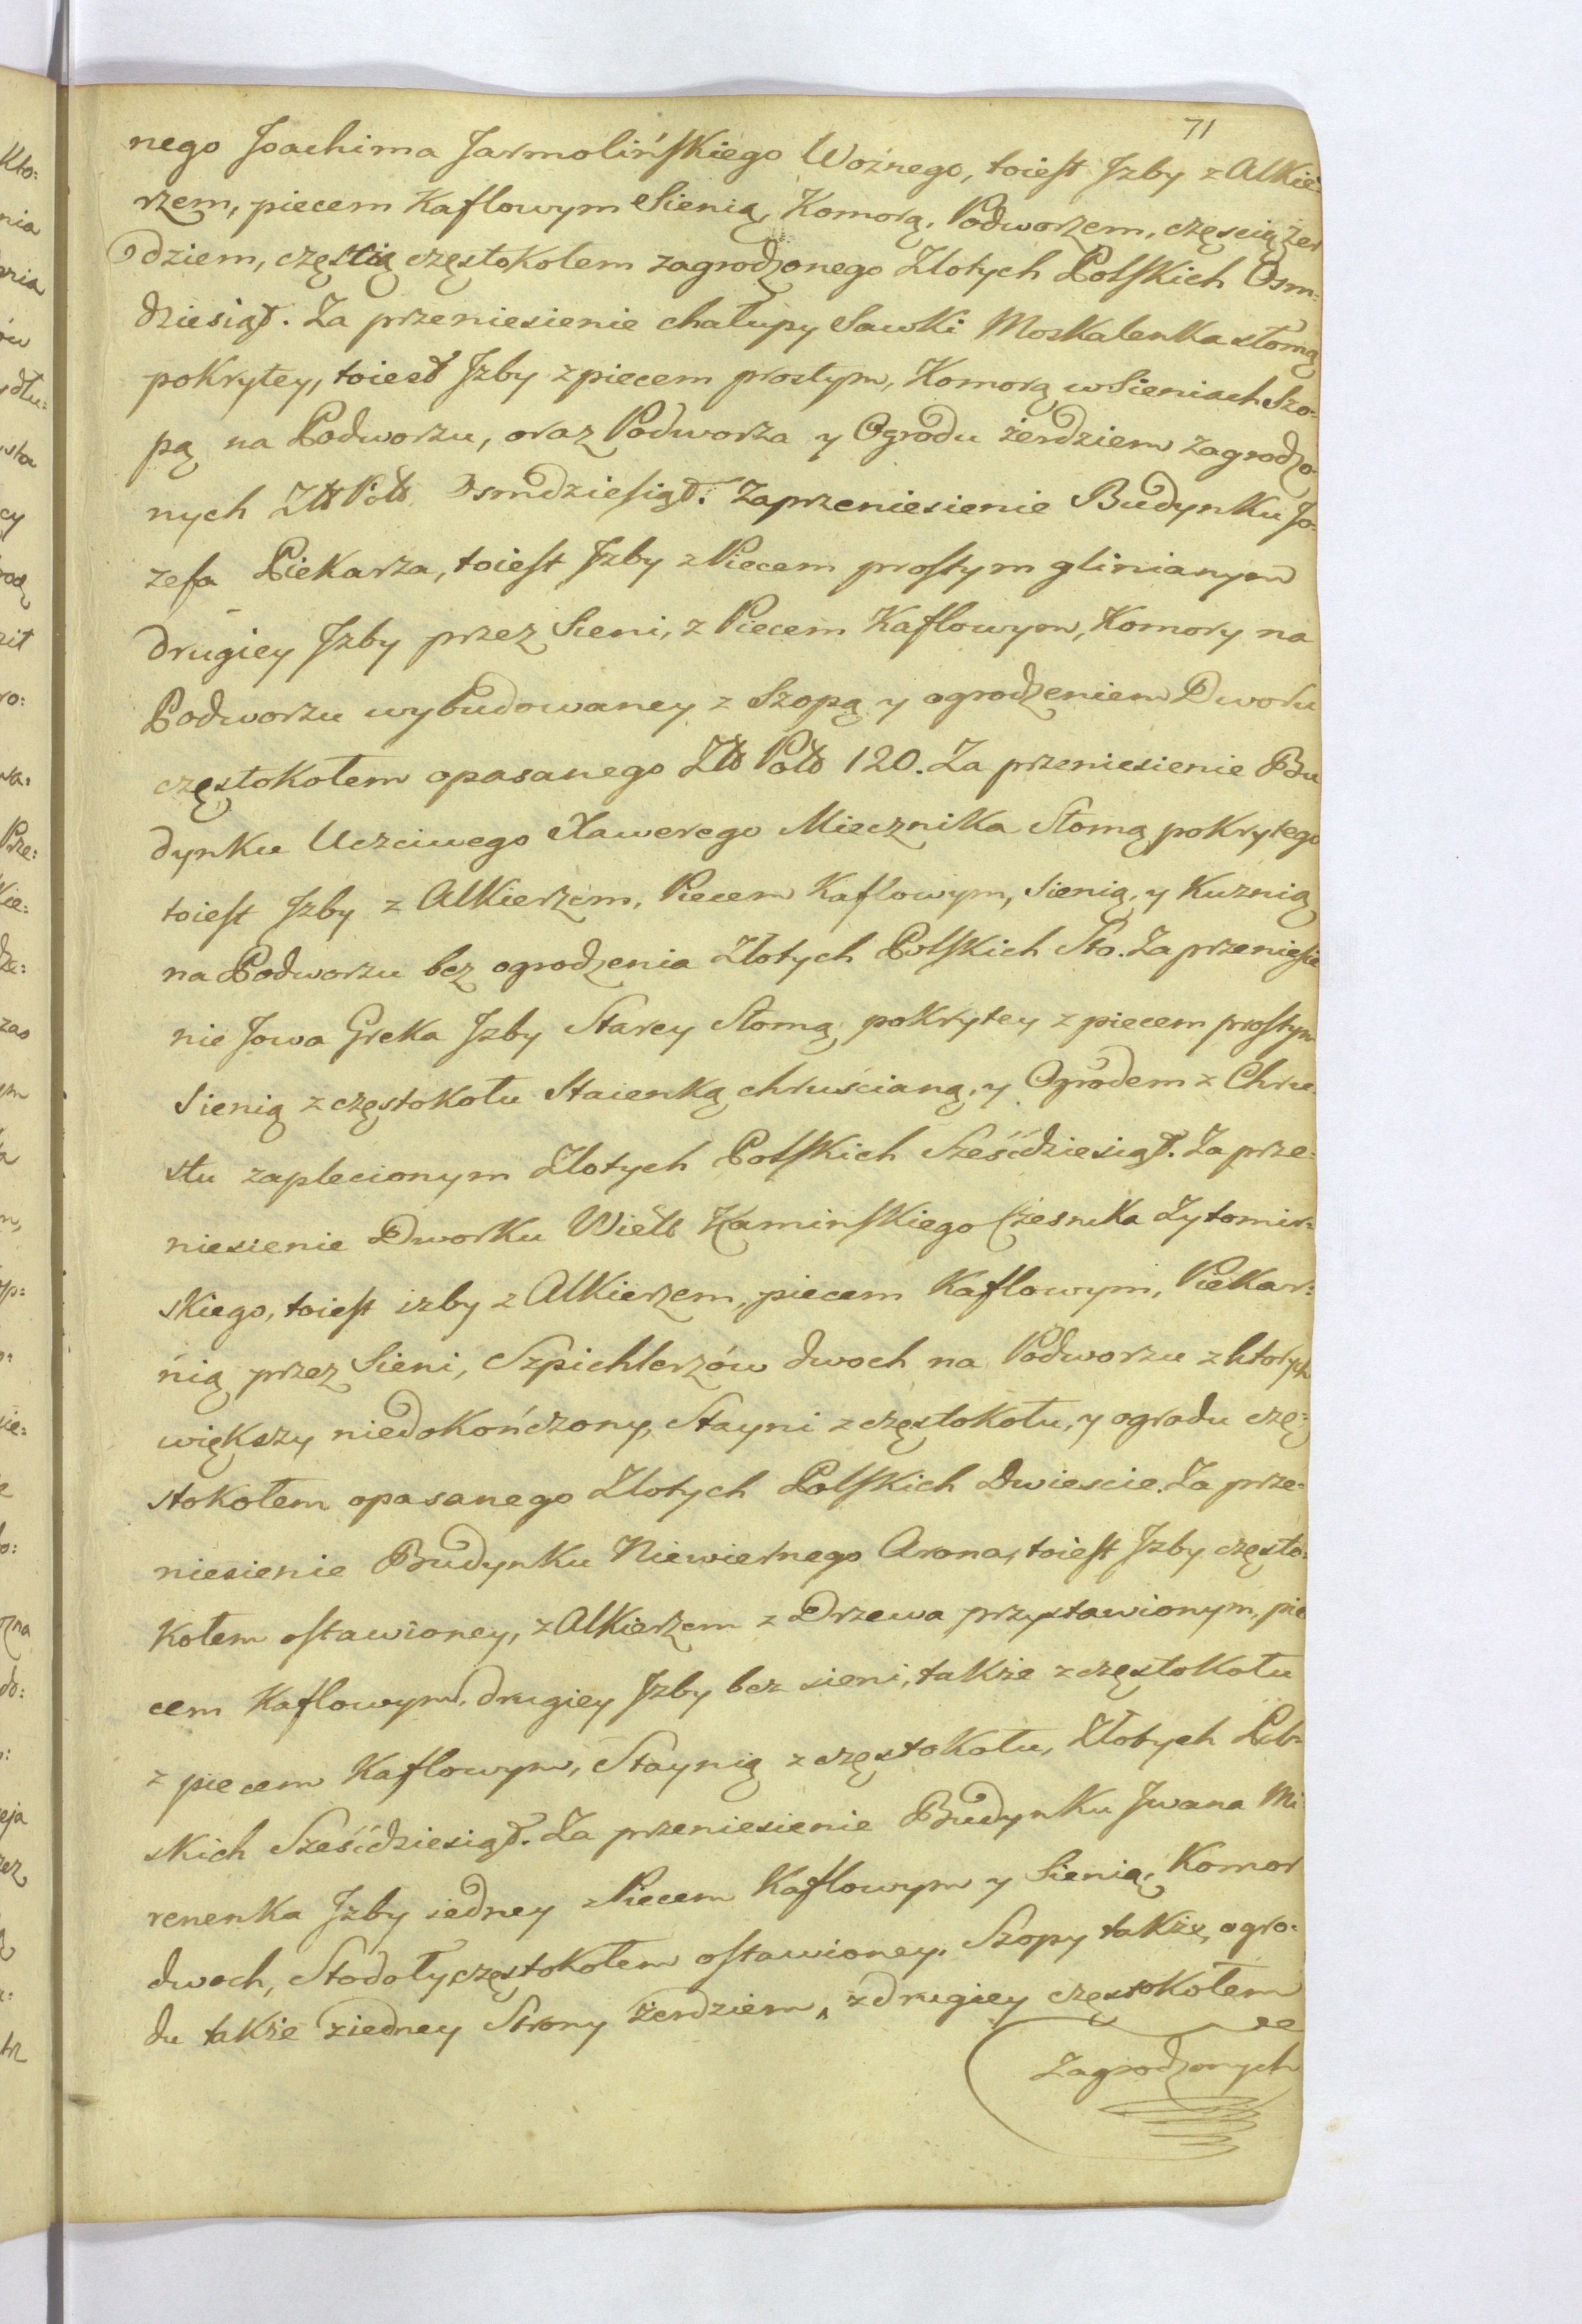 71
nego Joachima Jarmolińskiego Woźnego, toiest Jzby z Alkie:
rzem, piecem Kaflowym Sienią, Komorą, Podworzem, częscią żer
dziem, częscią częstokołem zagrodzonego Złotych Polskich Osm:
dziesiąt. Za przeniesienie chałupy Sawki Moskalenka słomą
pokrytey, toiest Jzby z piecem prostym, Komorą w Sieniach Szo:
pą na Podworzu, oraz Podworza y Ogrodu żerdziem zagrodzo:
nych Złł Polł Osmdziesiąt. Za przeniesienie Budynku Jo:
zefa Piekarza, toiest Jzby z Piecem prostym glinianym
drugiey Jzby przez Sieni, z Piecem Kaflowym, Komory na
Podworzu wybudowaney z Szopą y ogrodzeniem Dworu
częstokołem opasanego Złł Polł 120. Za przeniesienie Bu
dynku Uczciwego Xawerego Miecznika Słomą pokrytego
toiest Jzby z Alkierzem, Piecem Kaflowym, Sienią, y Kuznią
na Podworzu bez ogrodzenia Złotych Polskich Sto. Za przeniesie
nie Jowa Greka Jzby Starey Słomą pokrytey z piecem prostym
Sienią z częstokołu Staienką chruścianą, y Ogrodem z Chru:
stu zaplecionym Złotych Polskich Sześćdziesiąt. Za prze:
niesienie Dworku Wielł Kaminskiego Czesnika Zytomir:
skiego, toiest izby z Alkierzem, piecem Kaflowym, Piekar:
nią przez Sieni, Szpichlerzów dwoch na Podworzu z ktorych
większy niedokończony, Stayni z częstokołu, y ogrodu czę:
stokołem opasanego Złotych Polskich Dwiescie. Za prze:
niesienie Budynku Niewiernego Arona, toiest Jzby często:
kołem ostawioney, z Alkierzem z Drzewa przystawionym, pie
cem Kaflowym, drugiey Jzby bez sieni, także z częstokołu
z piecem Kaflowym, Staynią z częstokołu, Złotych Pol:
skich Sześćdziesiąt. Za przeniesienie Budynku Jwana Mi:
renenka Jzby iedney z Piecem Kaflowym y Sienią, Komor
dwoch, Stodoły częstokołem ostawioney. Szopy także, ogro:
du także ziedney Strony żerdziem, z drugiey częstokołem
Zagrodzonych